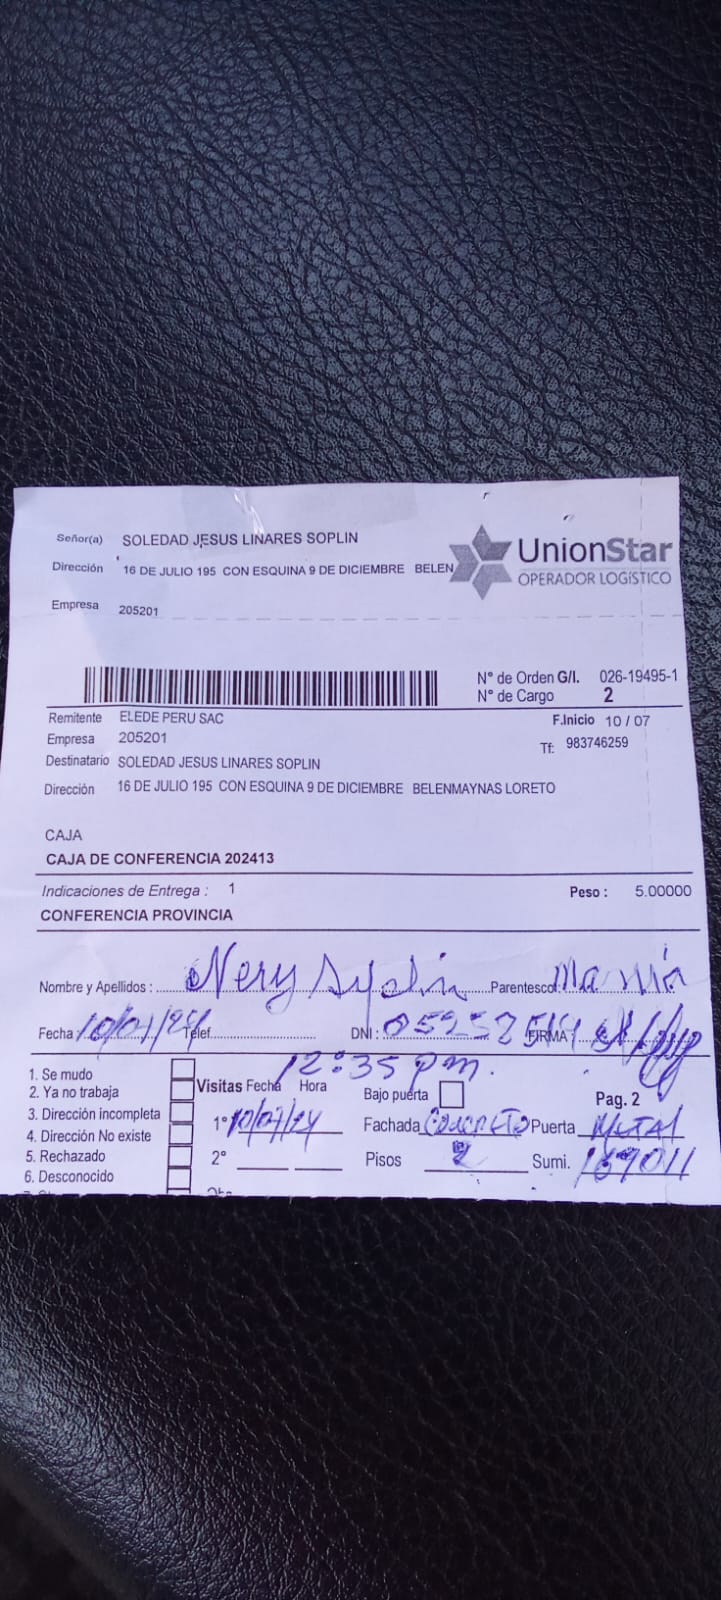 Señor(a) SOLEDAD JESUS LINARES SOPLIN
Dirección 16 DE JULIO 195 CON ESQUINA 9 DE DICIEMBRE BELEN
UnionStar
OPERADOR LOGÍSTICO
Empresa 205201
N° de Orden G/I. 026-19495-1
N° de Cargo 2
Remitente ELEDE PERU SAC
F.Inicio 10 / 07
Empresa 205201
Tf: 983746259
Destinatario SOLEDAD JESUS LINARES SOPLIN
Dirección 16 DE JULIO 195 CON ESQUINA 9 DE DICIEMBRE BELENMAYNAS LORETO
CAJA
CAJA DE CONFERENCIA 202413
Indicaciones de Entrega : 1 Peso : 5.00000
CONFERENCIA PROVINCIA
Nombre y Apellidos : Nery Parentesco
Fecha 10/07/24 Telef. DNI : FIRMA :
12:35 pm.
1. Se mudo
2. Ya no trabaja
3. Dirección incompleta
4. Dirección No existe
5. Rechazado
6. Desconocido
Visitas Fecha Hora Bajo puerta Pag. 2
1° 10/07/24 Fachada CONCRETO Puerta METAL
2° Pisos 2 Sumi. 169011